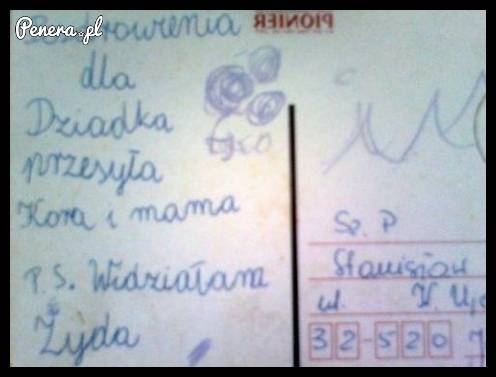 Penera.pl
Pozdrowienia
dla
Dziadka
przesyła
Kora i mama
P.S. Widziałam
Żyda
PIONIER
Sz. P
Stanisław
ul. W.
32-520